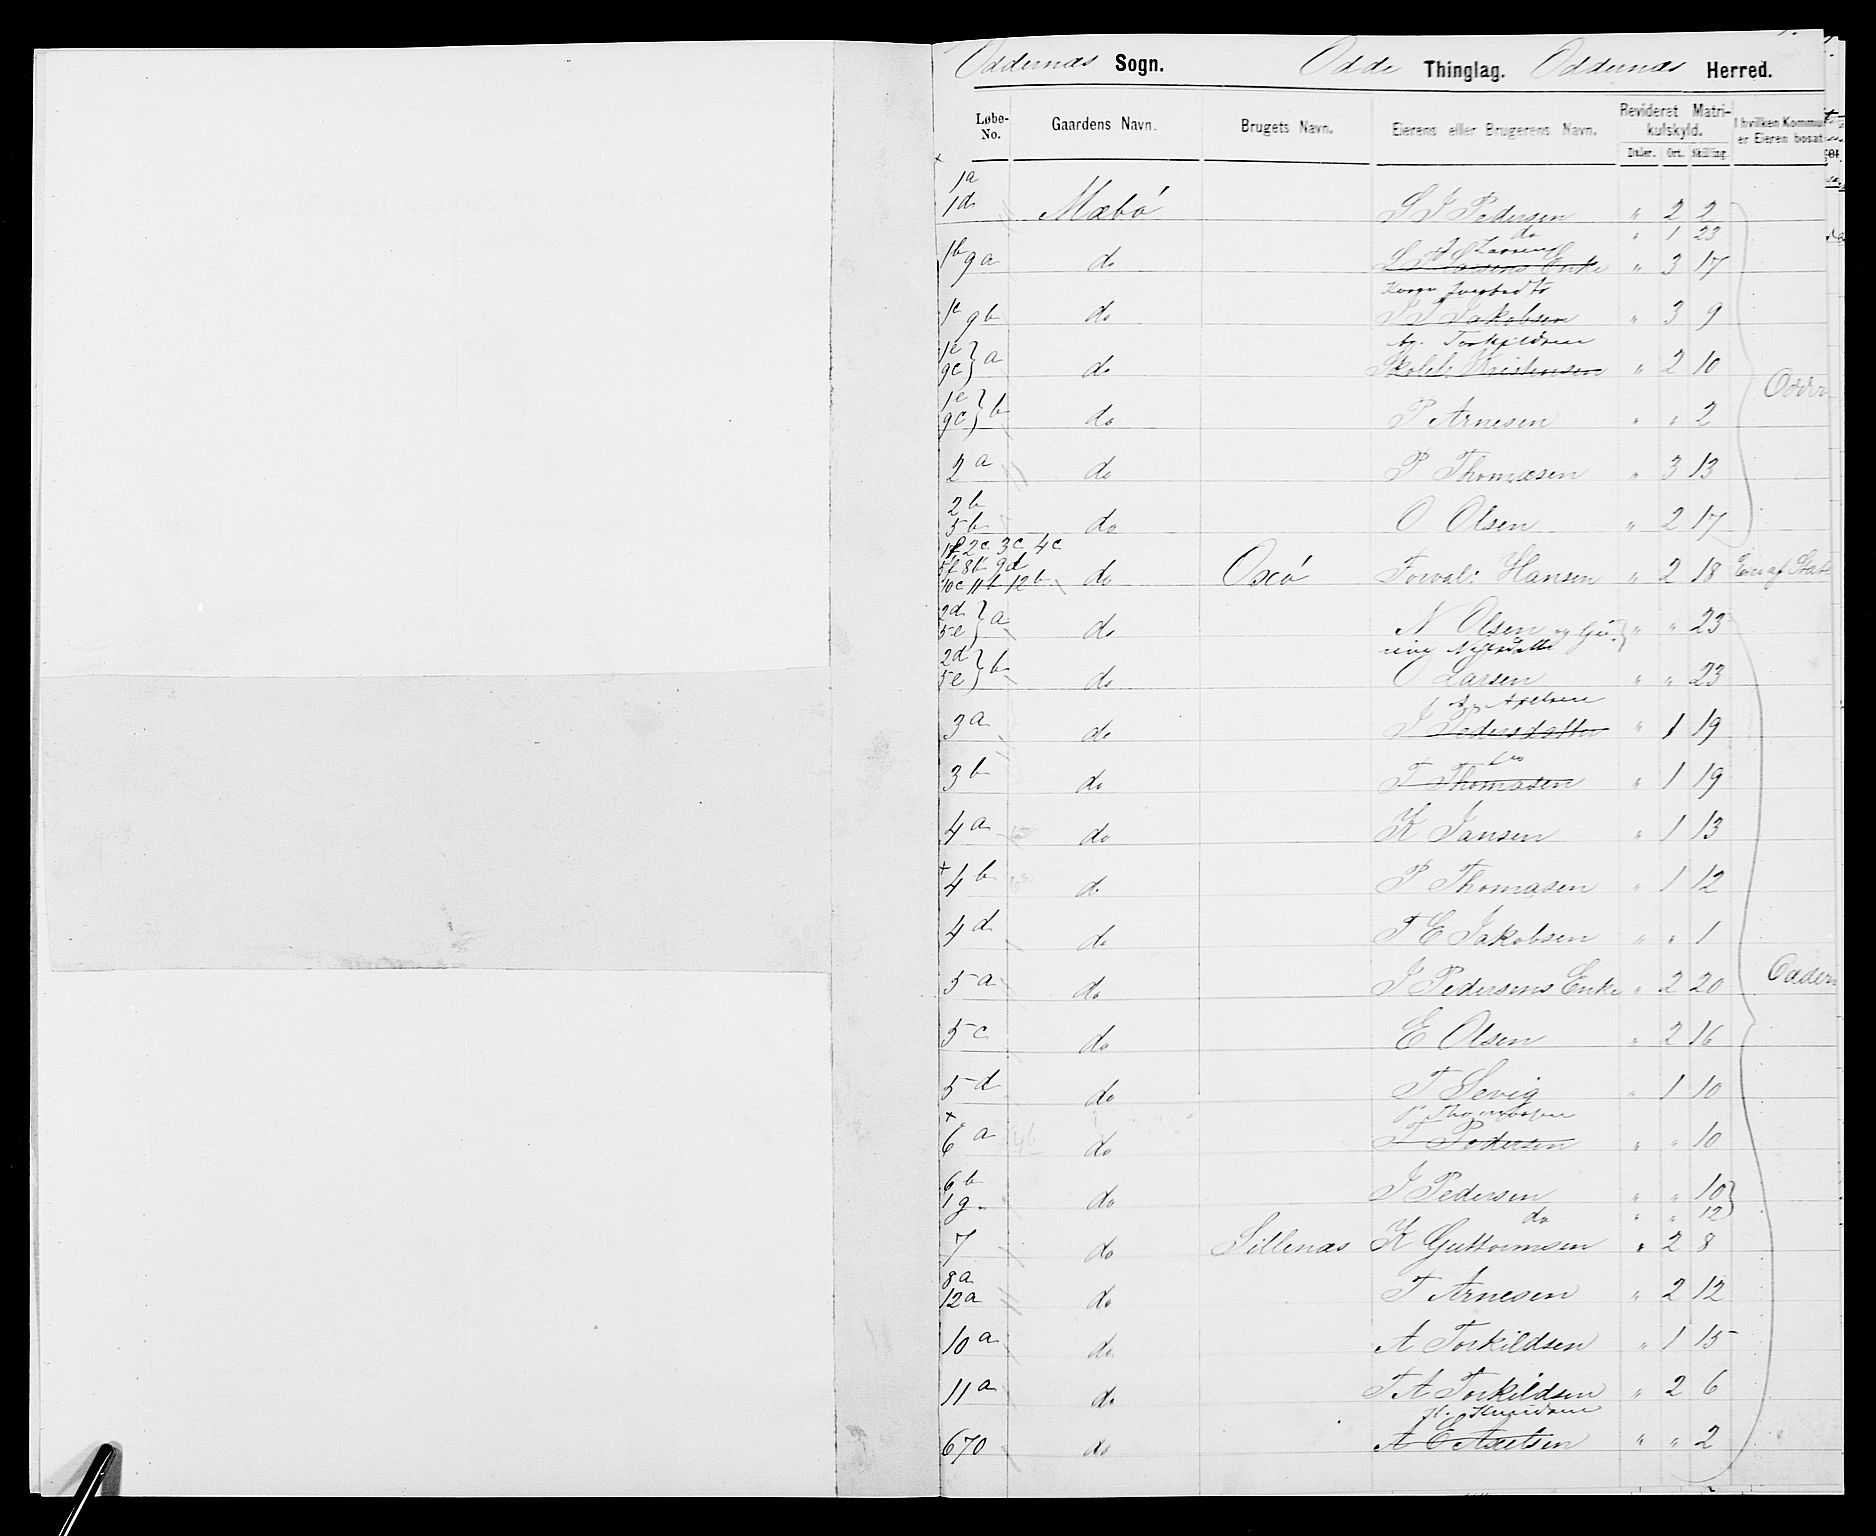 Oddernæs Sogn. Odde Thinglag. Oddernæs Herred.
Løbe-No. Gaardens Navn. Brugets Navn. Eierens eller Brugerens Navn. Revideret Matrikulskyld. I hvilken Kommu er Eieren bosat
Daler. Ort. Skilling.
1a
1d Mæbø S J Pedersen " 2 2
do " 1 23
Larsen
1b 9a do L Larsens Enke " 3 17
1c 9b do J J Jakobsen " 3 9
Torkildsen
1e 9c } a do Kristensen " 2 10
Odder
1e 9c } b do P Arnesen " " 2
2a do P Thomasen " 3 13
2b
5b do O Olsen " 2 17
1f 2c 3c 4c
5f 8b 9d
10c 11b 12b do Oxø Forval: Hansen " 2 18 Eies af State
2d 5e } a do N Olsen og Gu- } " " 23
2d 5e } b do O Larsen " " 23
Axelsen
3a do J Pedersdatter " 1 19
do
3b do T Thomasen " 1 19
4a do K Jansen " 1 13
+
4b do P Thomasen " 1 12
4d do T E Jakobsen " " 1
5a do J Pedersens Enke " 2 20
Oddern
5c do E Olsen " 2 16
5d do T Sevig " 1 10
+
6a 4b do T Pedersen " " 10
6b
1g. do J Pedersen " " 10 }
do " " 12
7 do Sillenæs K Guttormsen " 2 8
8a
12a do T Arnesen " 2 12
10a do A Torkildsen " 1 15
11a do T A Torkildsen " 2 6
670 do A E Axelsen " " 2